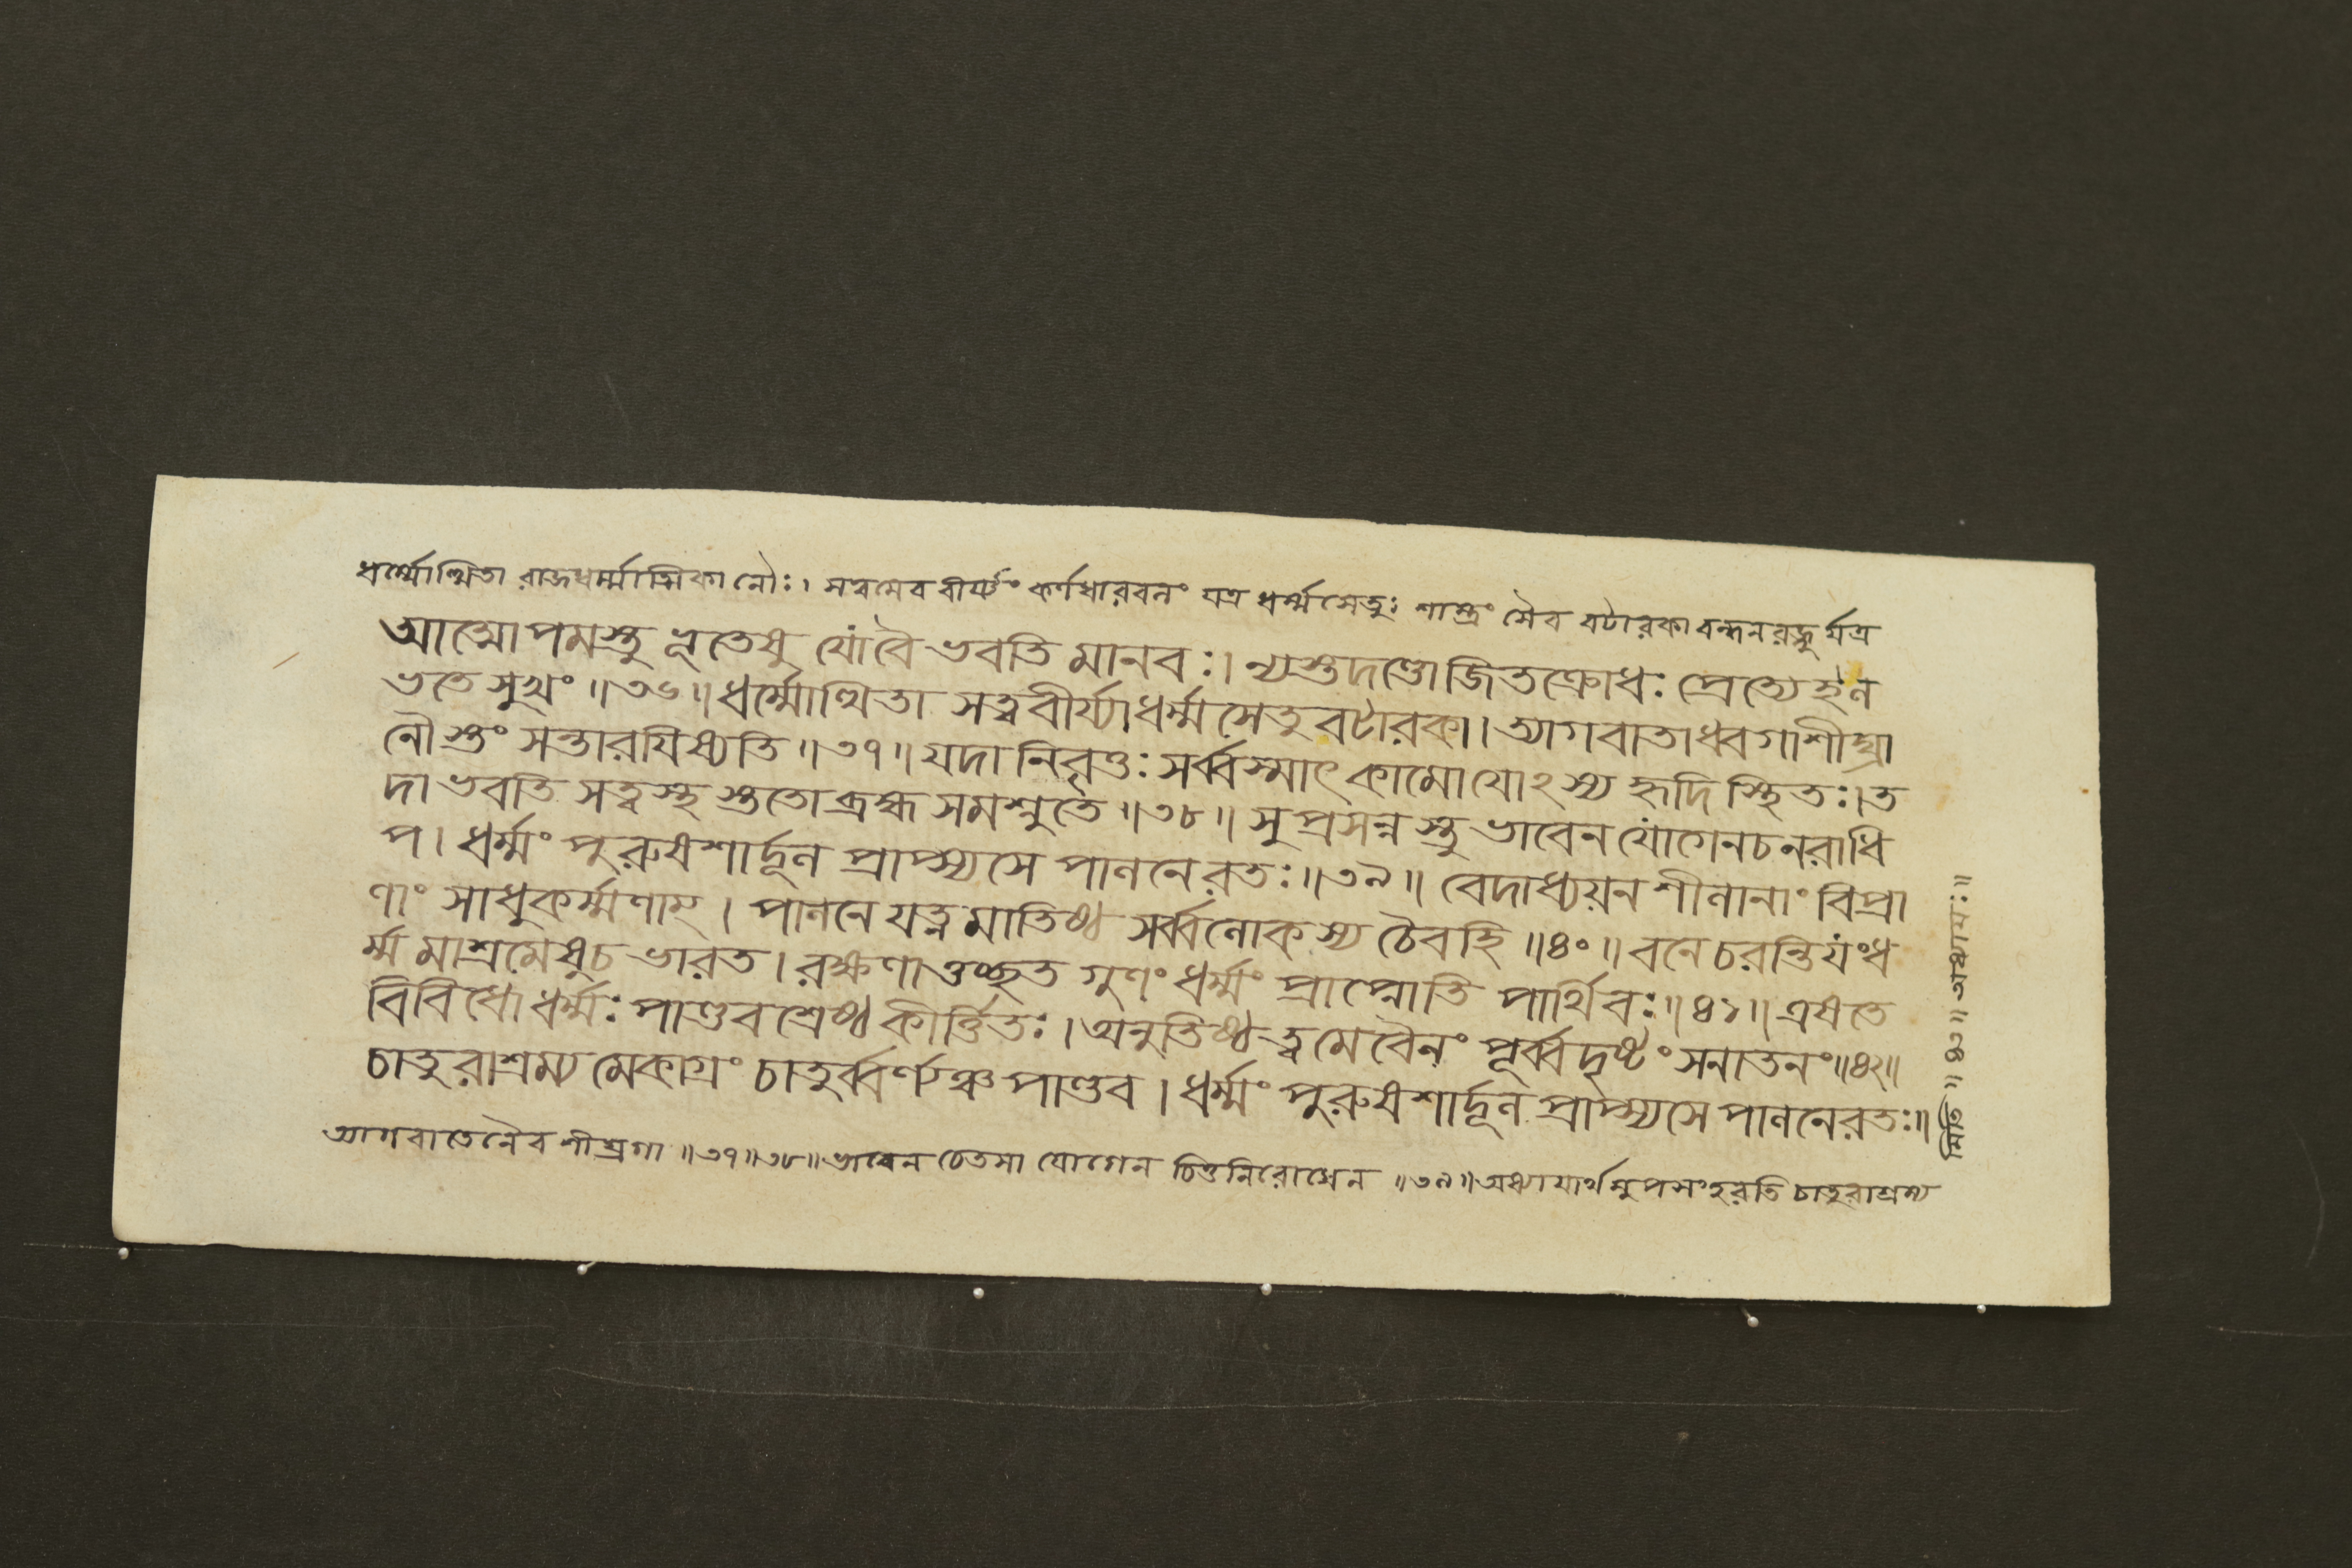 ধর্ম্মোত্থিতা রাজধর্ম্মাত্মিকা নৌঃ। সত্বমেব বীর্য্যং কর্ণধারবলং যত্র ধর্ম্মসেতুঃ শাস্ত্রং সৈব বটারকা বন্ধনরজ্জুর্যত্র
আত্মোপমস্তু ভূতেষু যোবৈ ভবতি মানবঃ। ন্যস্তদণ্ডোজিতক্রোধঃ প্রেত্যেহ ল
ভতে সুখং ॥৩৬॥ ধর্ম্মোত্থিতা সত্ত্ববীর্য্যা ধর্ম্মসেতু বটারকা। ত্যাগবাতাধ্বগাশীঘ্রা
নৌ স্তং সন্তারযিষ্যতি ॥৩৭॥ যদা নিবৃত্তঃ সর্ব্বস্মাৎ কামোযোঽস্য হৃদি স্থিতঃ। ত
দা ভবতি সত্ত্বস্থ স্ততো ব্রহ্ম সমশ্নুতে ॥৩৮॥ সুপ্রসন্ন স্তু ভাবেন যোগেনচনরাধি
প। ধর্ম্মং পুরুষশার্দ্দূল প্রাপ্স্যসে পালনে রতঃ ॥৩৯॥ বেদাধ্যয়ন শীলানাং বিপ্রা
ণাং সাধুকর্ম্মণাম্। পালনে যত্ন মাতিষ্ঠ সর্ব্বলোকস্য চৈবহি ॥৪০॥ বনে চরন্তি যংধ
র্ম্ম মাশ্রমেষুচ ভারত। রক্ষণাত্তচ্ছত গুণং ধর্ম্মং প্রাপ্নোতি পার্থিবঃ ॥৪১॥ এষতে
বিবিধো ধর্ম্মঃ পাণ্ডবশ্রেষ্ঠ কীর্ত্তিতঃ। অনুতিষ্ঠ ত্বমেবৈনং পূর্ব্বদৃষ্টং সনাতনং ॥৪২॥
চাতুরাশ্রম্য মেকাগ্রং চাতুর্ব্বর্ণ্যঞ্চ পাণ্ডব। ধর্ম্মং পুরুষশার্দ্দূল প্রাপ্স্যসে পালনেরতঃ॥
ত্যাগবাতেনৈব শীঘ্রগা ॥৩৭॥৩৮॥ ভাবেন চেতসা যোগেন চিত্তনিরোধেন ॥৩৯॥ অধ্যাযার্থমুপসংহরতি চাতুরাশ্রম্য
মিতি॥ ৪৩॥ অধ্যাযঃ॥